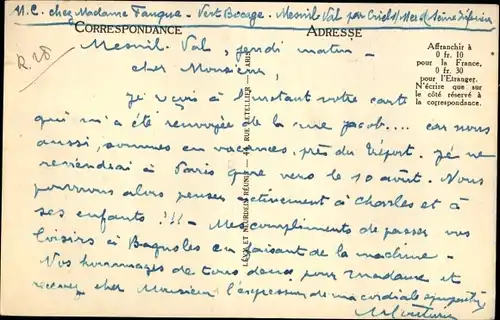 M.C. chez Madame Fangue - Vert Bocage - Mesnil Val par Criel s/Mer (Seine Inférieure
CORRESPONDANCE
ADRESSE
R. 28
Affranchir à
0 fr. 10
pour la France,
0 fr. 30
pour l'Etranger.
N'écrire que sur
le côté réservé à
la correspondance.
LÉVY et NEURDEIN RÉUNIS — 44, RUE LETELLIER PARIS
Mesnil-Val, jeudi matin -
cher Monsieur,
Je reçois à l'instant votre carte
qui m'a été renvoyée de la rue Jacob.... car nous
aussi, sommes en vacances, près du Tréport. Je ne
reviendrai à Paris que vers le 10 août. Nous
pourrons alors penser activement à Charles et à
ses enfants !!! - Mes compliments de passer vos
loisirs à Bagnoles en faisant de la machine -
Nos hommages de tous deux pour madame et
recevez cher Monsieur l'expression de ma cordiale sympathie